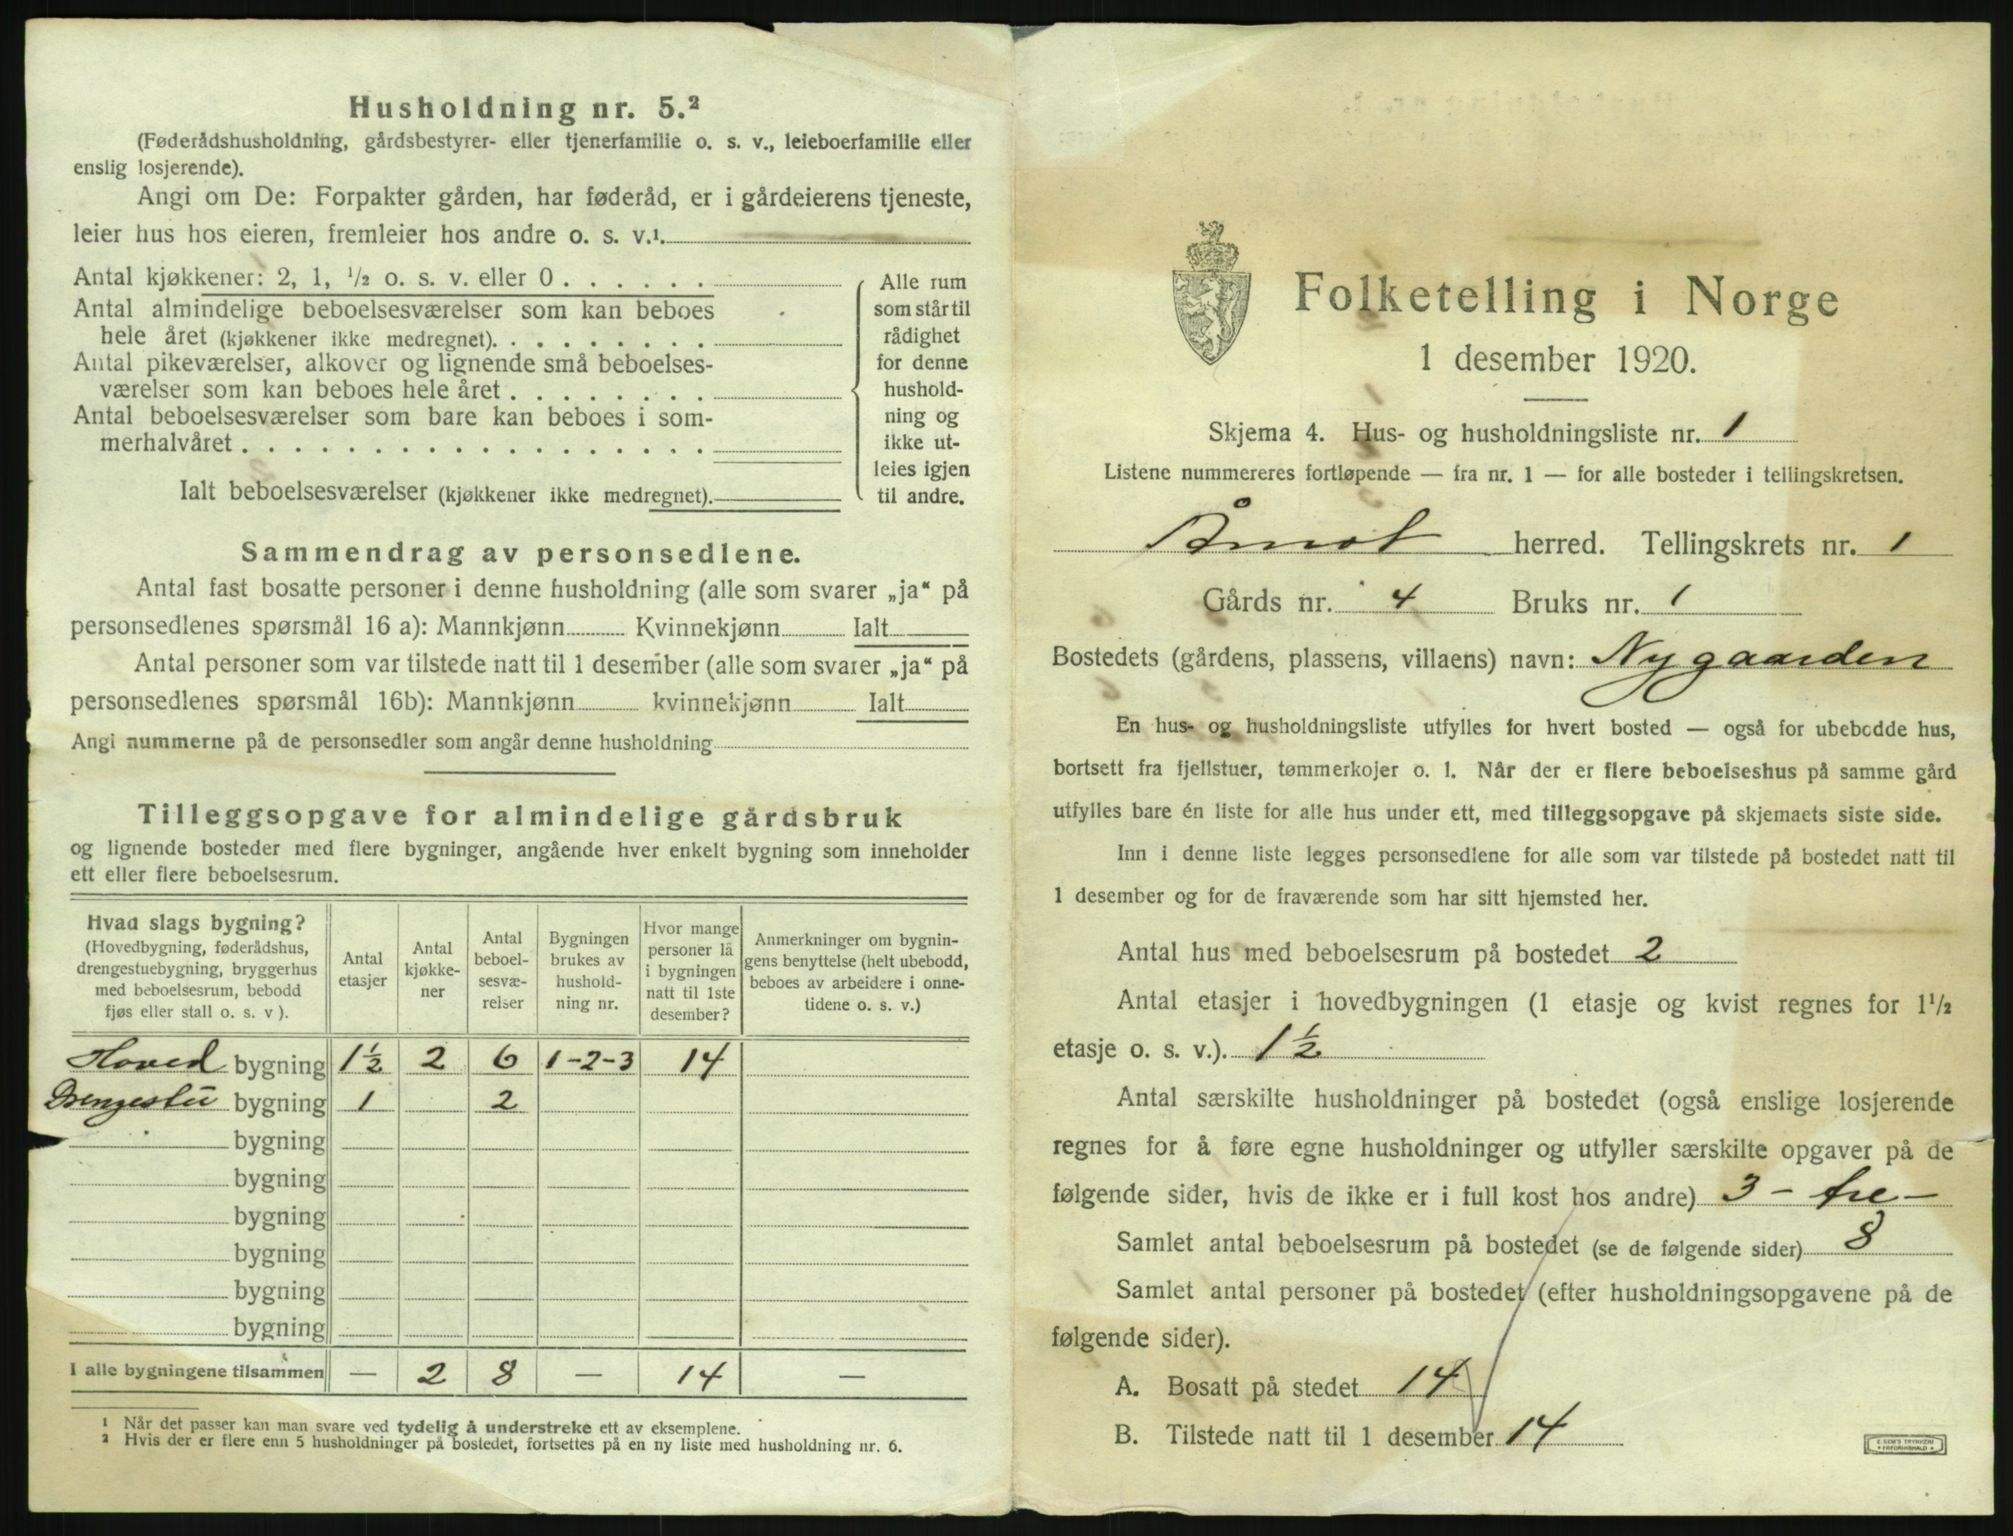 Husholdning nr. 5.²
(Føderådshusholdning, gårdsbestyrer- eller tjenerfamilie o. s. v., leieboerfamilie eller
enslig losjerende).
Angi om De: Forpakter gården, har føderåd, er i gårdeierens tjeneste,
leier hus hos eieren, fremleier hos andre o. s. v.¹
Antal kjøkkener: 2, 1, ¹/₂ o. s. v. eller 0 . . . . . .
Antal almindelige beboelsesværelser som kan beboes
hele året (kjøkkener ikke medregnet). . . . . . . . .
Antal pikeværelser, alkover og lignende små beboelses-
værelser som kan beboes hele året . . . . . . . .
Antal beboelsesværelser som bare kan beboes i som-
merhalvåret . . . . . . . . . . . . . . . . . .
Ialt beboelsesværelser (kjøkkener ikke medregnet).
Alle rum
som står til
rådighet
for denne
hushold-
ning og
ikke ut-
leies igjen
til andre.
Sammendrag av personsedlene.
Antal fast bosatte personer i denne husholdning (alle som svarer „ja“ på
personsedlenes spørsmål 16 a): Mannkjønn Kvinnekjønn Ialt
Antal personer som var tilstede natt til 1 desember (alle som svarer „ja“ på
personsedlenes spørsmål 16b): Mannkjønn kvinnekjønn Ialt
Angi nummerne på de personsedler som angår denne husholdning
Tilleggsopgave for almindelige gårdsbruk
og lignende bosteder med flere bygninger, angående hver enkelt bygning som inneholder
ett eller flere beboelsesrum.
Hvad slags bygning?
(Hovedbygning, føderådshus,
drengestuebygning, bryggerhus
med beboelsesrum, bebodd
fjøs eller stall o. s. v ).
Antal
etasjer
Antal
kjøkke-
ner
Antal
beboel-
sesvæ-
relser
Bygningen
brukes av
hushold-
ning nr.
Hvor mange
personer lå
i bygningen
natt til 1ste
desember?
Anmerkninger om bygnin-
gens benyttelse (helt ubebodd,
beboes av arbeidere i onne-
tidene o. s. v.)
Hoved bygning 1½ 2 6 1-2-3 14
Drengestu bygning 1 2
bygning
bygning
bygning
bygning
bygning
bygning
I alle bygningene tilsammen — 2 8 — 14 —
¹ Når det passer kan man svare ved tydelig å understreke ett av eksemplene.
² Hvis der er flere enn 5 husholdninger på bostedet, fortsettes på en ny liste med husholdning nr. 6.
Folketelling i Norge
1 desember 1920.
Skjema 4. Hus- og husholdningsliste nr. 1
Listene nummereres fortløpende — fra nr. 1 — for alle bosteder i tellingskretsen.
Åmot herred. Tellingskrets nr. 1
Gårds nr. 4 Bruks nr. 1
Bostedets (gårdens, plassens, villaens) navn: Nygaarden
En hus- og husholdningsliste utfylles for hvert bosted — også for ubebodde hus,
bortsett fra fjellstuer, tømmerkojer o. l. Når der er flere beboelseshus på samme gård
utfylles bare én liste for alle hus under ett, med tilleggsopgave på skjemaets siste side.
Inn i denne liste legges personsedlene for alle som var tilstede på bostedet natt til
1 desember og for de fraværende som har sitt hjemsted her.
Antal hus med beboelsesrum på bostedet 2
Antal etasjer i hovedbygningen (1 etasje og kvist regnes for 1¹/₂
etasje o. s. v.). 1½
Antal særskilte husholdninger på bostedet (også enslige losjerende
regnes for å føre egne husholdninger og utfyller særskilte opgaver på de
følgende sider, hvis de ikke er i full kost hos andre) 3 - tre -
Samlet antal beboelsesrum på bostedet (se de følgende sider) 8
Samlet antal personer på bostedet (efter husholdningsopgavene på de
følgende sider).
A. Bosatt på stedet 14
B. Tilstede natt til 1 desember 14
E. SEM'S TRYKKERI
FREDRIKSHALD